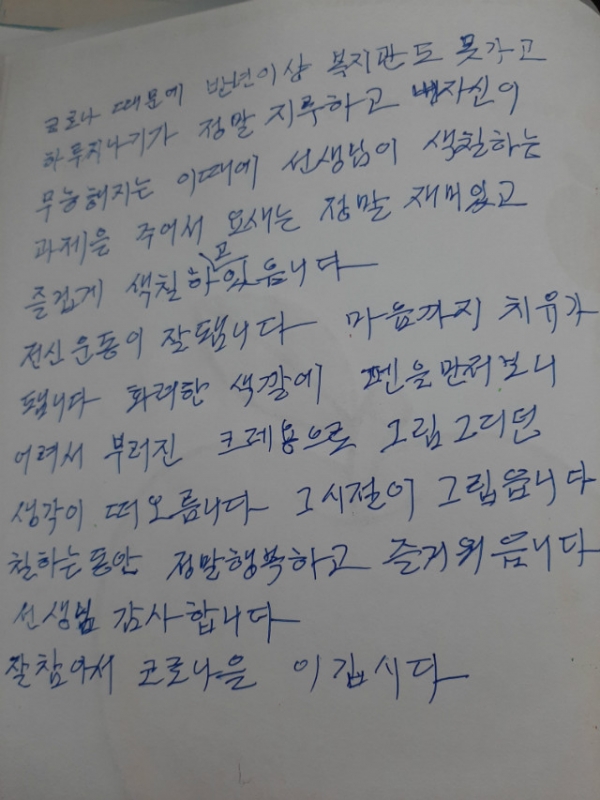 코로나 때문에 반년이상 복지관도 못가고
하루지나기가 정말 지루하고 자신이
무능해지는 이때에 선생님이 색칠하는
과제을 주어서 요새는 정말 재미있고
즐겁게 색칠하고있읍니다
전신운동이 잘됍니다 마음까지 치유가
됍니다 화려한 색깔에 펜을만저보니
어려서 부러진 크레용으로 그림그리던
생각이 떠오릅니다 그시절이 그립읍니다
칠하는동안 정말행복하고 즐거워읍니다
선생님 감사합니다
잘참아서 코로나을 이깁시다